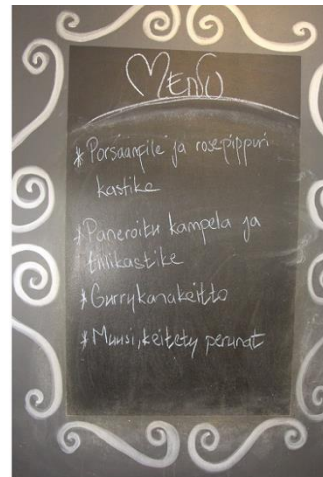 MENU
* Porsaanfile ja rosepippuri
kastike
* Paneroitu kampela ja
tillikastike
* Currykanakeitto
* Muusi, keitety perunat